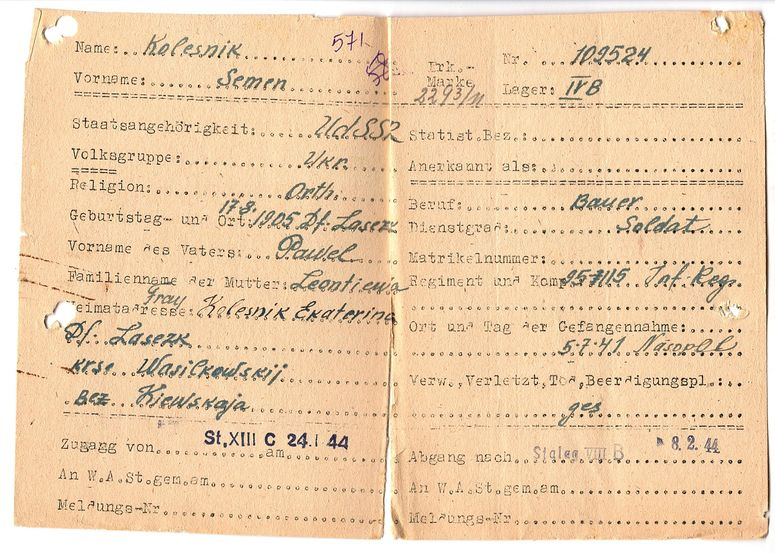 Name:..Kolesnik
571
Vorname:......Semen
Erk.-
Marke
2293/11
Nr. 109524
Lager: IV B
Staatsangehörigkeit:....UdSSR
Volksgruppe:.....Ukr.
Religion:.....Orth.
Geburtstag- und Ort: 17.8. 1905 Df. Lasezk
Vorname des Vaters: Pawel
Familienname der Mutter: Leontiewa
Heimatadresse: Frau Kolesnik Ekaterina
Df. Lasezk
Krs. Wasilkowskij
Bez. Kiewskaja
Zugang von St. XIII C am 24. 1 44
An W.A.St.gem.am
Meldungs-Nr
Statist.Bez.:
Anerkannt als:
Beruf: Bauer
Dienstgrad: Soldat
Matrikelnummer:
Regiment und Komp. Inf. Reg.
Ort und Tag der Gefangennahme:
5.7.41
Verw., Verletzt, Tod, Beerdigungspl.:
ges
Abgang nach Stalag VIII B 8. 2. 44
An W.A.St.gem.am
Meldungs-Nr